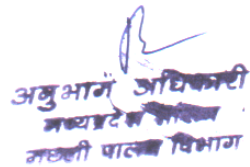 अनुभाग अधिकारी
मध्यप्रदेश शासन
मछली पालन विभाग